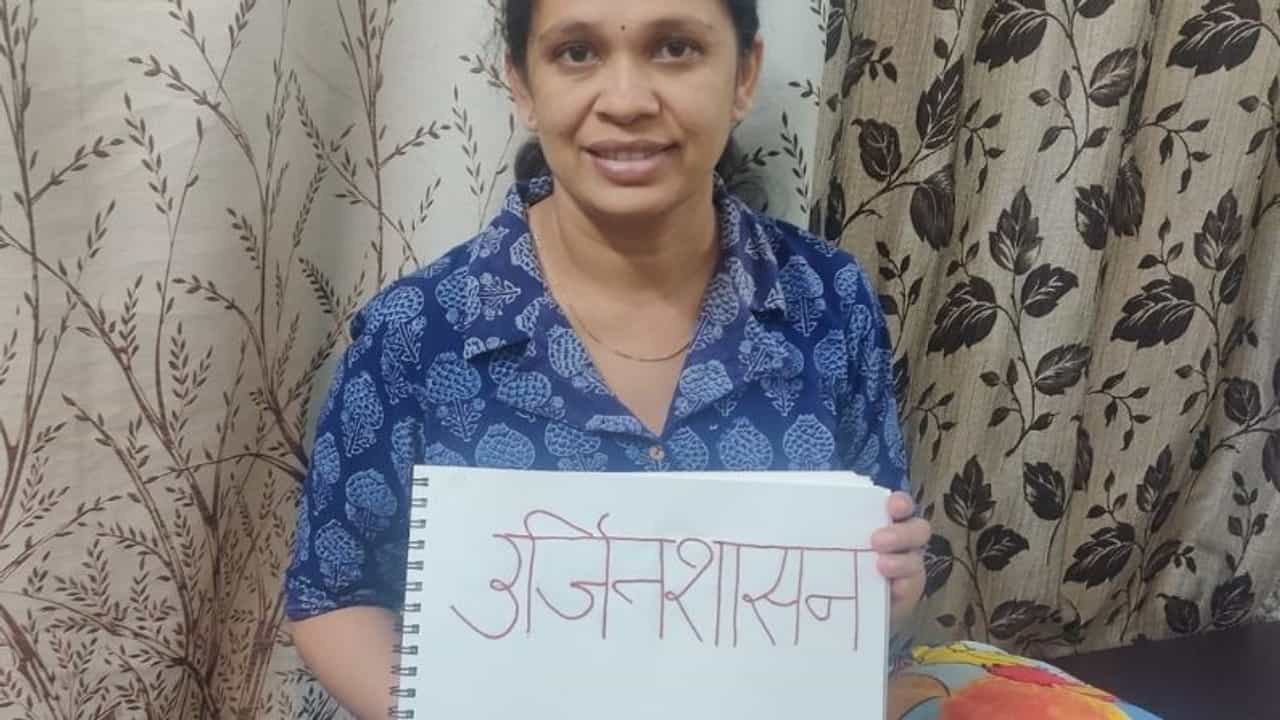 उर्जितशासन